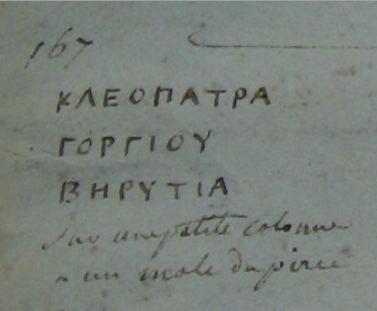 167
ΚΛΕΟΠΑΤΡΑ
ΓΟΡΓΙΟΥ
ΒΗΡΥΤΙΑ
Sur une petite colonne
un mole du pirée